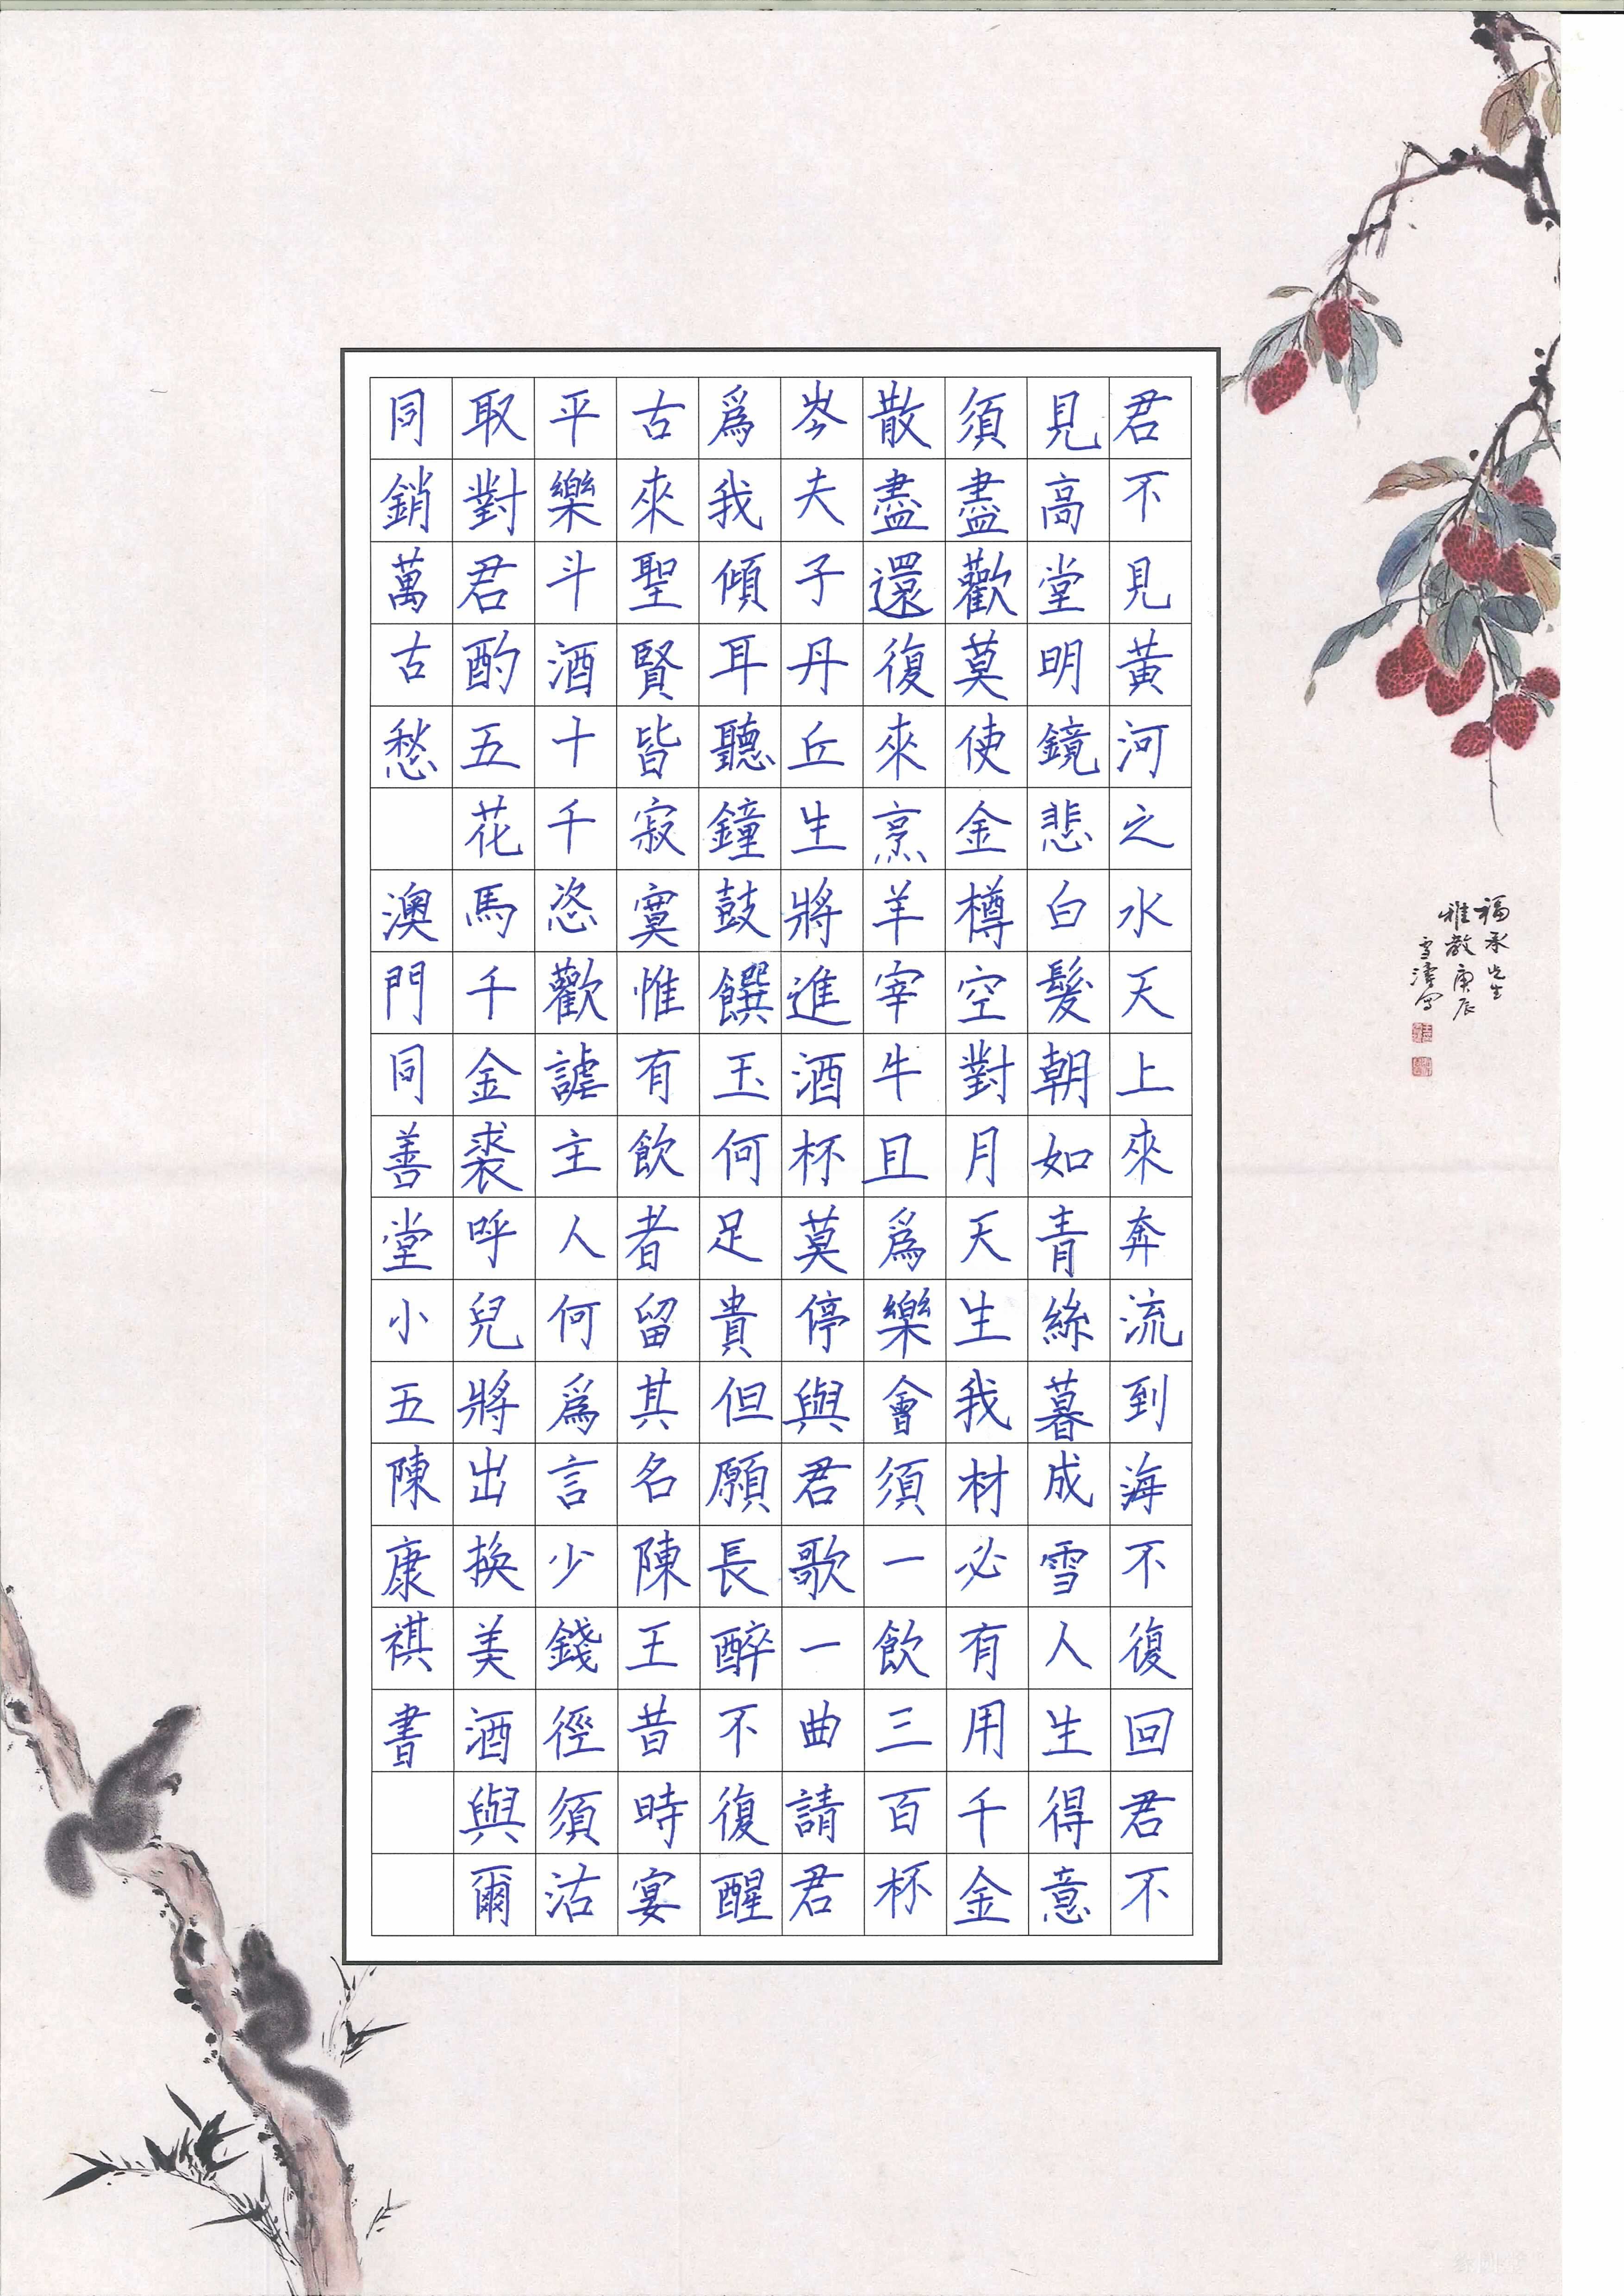 君不見黃河之水天上來奔流到海不復回君不
見高堂明鏡悲白髮朝如青絲暮成雪人生得意
須盡歡莫使金樽空對月天生我材必有用千金
散盡還復來烹羊宰牛且為樂會須一飲三百杯
岑夫子丹丘生將進酒杯莫停與君歌一曲請君
為我傾耳聽鐘鼓饌玉何足貴但願長醉不復醒
古來聖賢皆寂寞惟有飲者留其名陳王昔時宴
平樂斗酒十千恣歡謔主人何為言少錢徑須沽
取對君酌五花馬千金裘呼兒將出換美酒與爾
同銷萬古愁 澳門同善堂小五陳康祺書
福承先生
雅教庚辰
雪濤寫